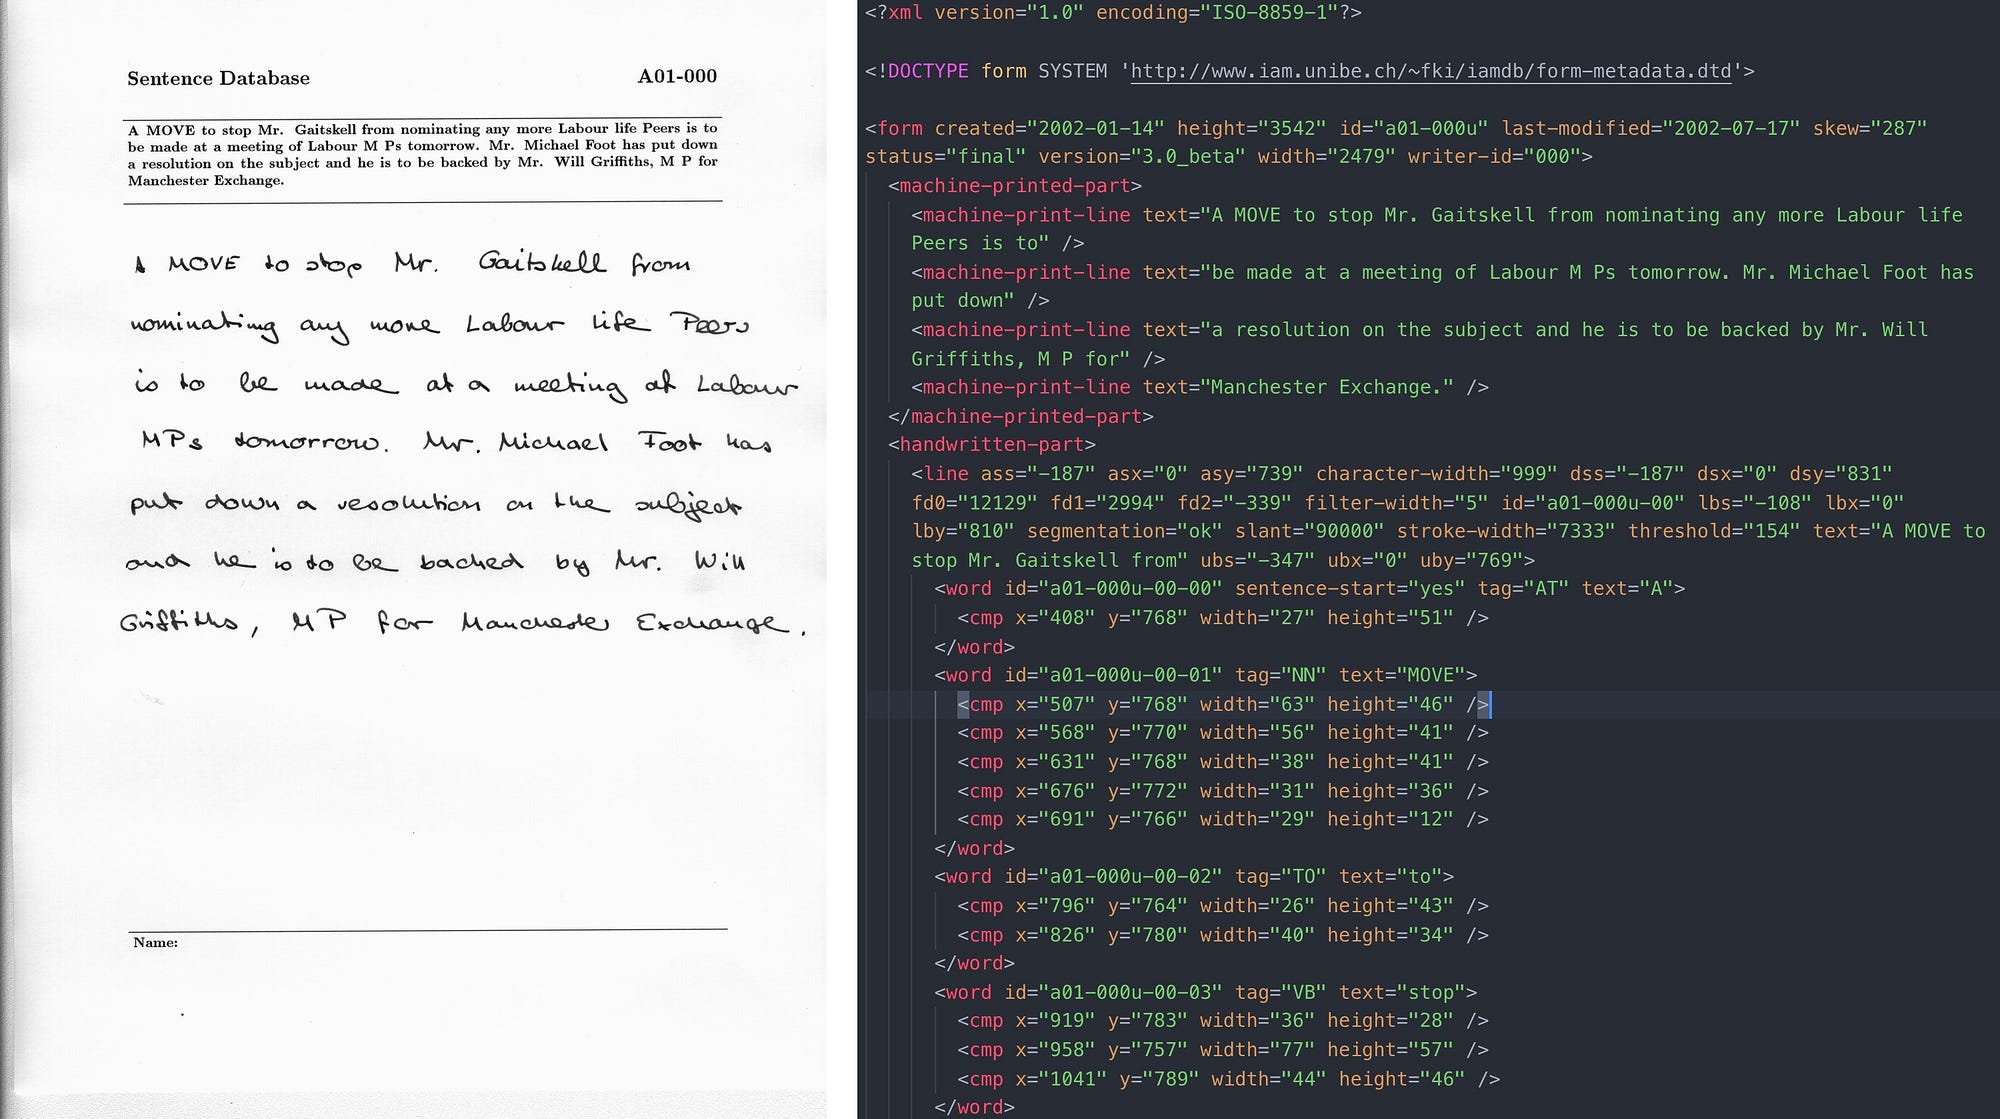 Sentence Database A01-000
A MOVE to stop Mr. Gaitskell from nominating any more Labour life Peers is to
be made at a meeting of Labour M Ps tomorrow. Mr. Michael Foot has put down
a resolution on the subject and he is to be backed by Mr. Will Griffiths, M P for
Manchester Exchange.
A MOVE to stop Mr. Gaitskell from
nominating any more Labour life Peers
is to be made at a meeting of Labour
MPs tomorrow. Mr. Michael Foot has
put down a resolution on the subject
and he is to be backed by Mr. Will
Griffiths, MP for Manchester Exchange.
Name:
<?xml version="1.0" encoding="ISO-8859-1"?>
<!DOCTYPE form SYSTEM 'http://www.iam.unibe.ch/~fki/iamdb/form-metadata.dtd'>
<form created="2002-01-14" height="3542" id="a01-000u" last-modified="2002-07-17" skew="287"
status="final" version="3.0_beta" width="2479" writer-id="000">
<machine-printed-part>
<machine-print-line text="A MOVE to stop Mr. Gaitskell from nominating any more Labour life
Peers is to" />
<machine-print-line text="be made at a meeting of Labour M Ps tomorrow. Mr. Michael Foot has
put down" />
<machine-print-line text="a resolution on the subject and he is to be backed by Mr. Will
Griffiths, M P for" />
<machine-print-line text="Manchester Exchange." />
</machine-printed-part>
<handwritten-part>
<line ass="-187" asx="0" asy="739" character-width="999" dss="-187" dsx="0" dsy="831"
fd0="12129" fd1="2994" fd2="-339" filter-width="5" id="a01-000u-00" lbs="-108" lbx="0"
lby="810" segmentation="ok" slant="90000" stroke-width="7333" threshold="154" text="A MOVE to
stop Mr. Gaitskell from" ubs="-347" ubx="0" uby="769">
<word id="a01-000u-00-00" sentence-start="yes" tag="AT" text="A">
<cmp x="408" y="768" width="27" height="51" />
</word>
<word id="a01-000u-00-01" tag="NN" text="MOVE">
<cmp x="507" y="768" width="63" height="46" />
<cmp x="568" y="770" width="56" height="41" />
<cmp x="631" y="768" width="38" height="41" />
<cmp x="676" y="772" width="31" height="36" />
<cmp x="691" y="766" width="29" height="12" />
</word>
<word id="a01-000u-00-02" tag="TO" text="to">
<cmp x="796" y="764" width="26" height="43" />
<cmp x="826" y="780" width="40" height="34" />
</word>
<word id="a01-000u-00-03" tag="VB" text="stop">
<cmp x="919" y="783" width="36" height="28" />
<cmp x="958" y="757" width="77" height="57" />
<cmp x="1041" y="789" width="44" height="46" />
</word>